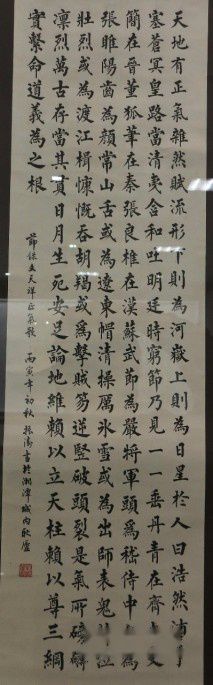 天地有正氣雜然賦流形下則為河嶽上則為日星於人曰浩然沛乎
塞蒼冥皇路當清夷含和吐明廷時窮節乃見一一垂丹青在齊太史
簡在晉董狐筆在秦張良椎在漢蘇武節為嚴將軍頭為嵇侍中血為
張睢陽齒為顏常山舌或為遼東帽清操厲冰雪或為出師表鬼神泣
壯烈或為渡江楫慷慨吞胡羯或為擊賊笏逆豎破頭裂是氣所磅礴
凜烈萬古存當其貫日月生死安足論地維賴以立天柱賴以尊三綱
實繫命道義為之根
節錄文天祥正氣歌 丙寅年初秋 振濤書於湘潭城內廬